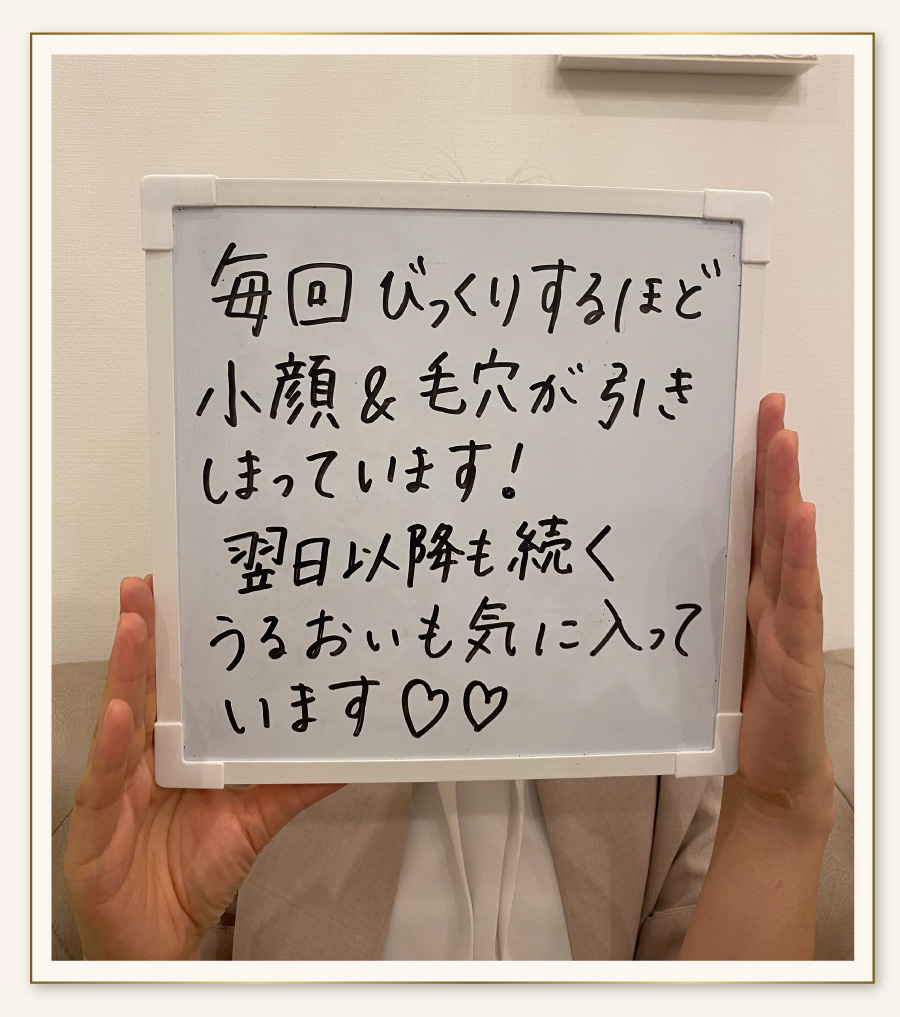 毎回びっくりするほど
小顔&毛穴が引き
しまっています!
翌日以降も続く
うるおいも気に入って
います♡♡